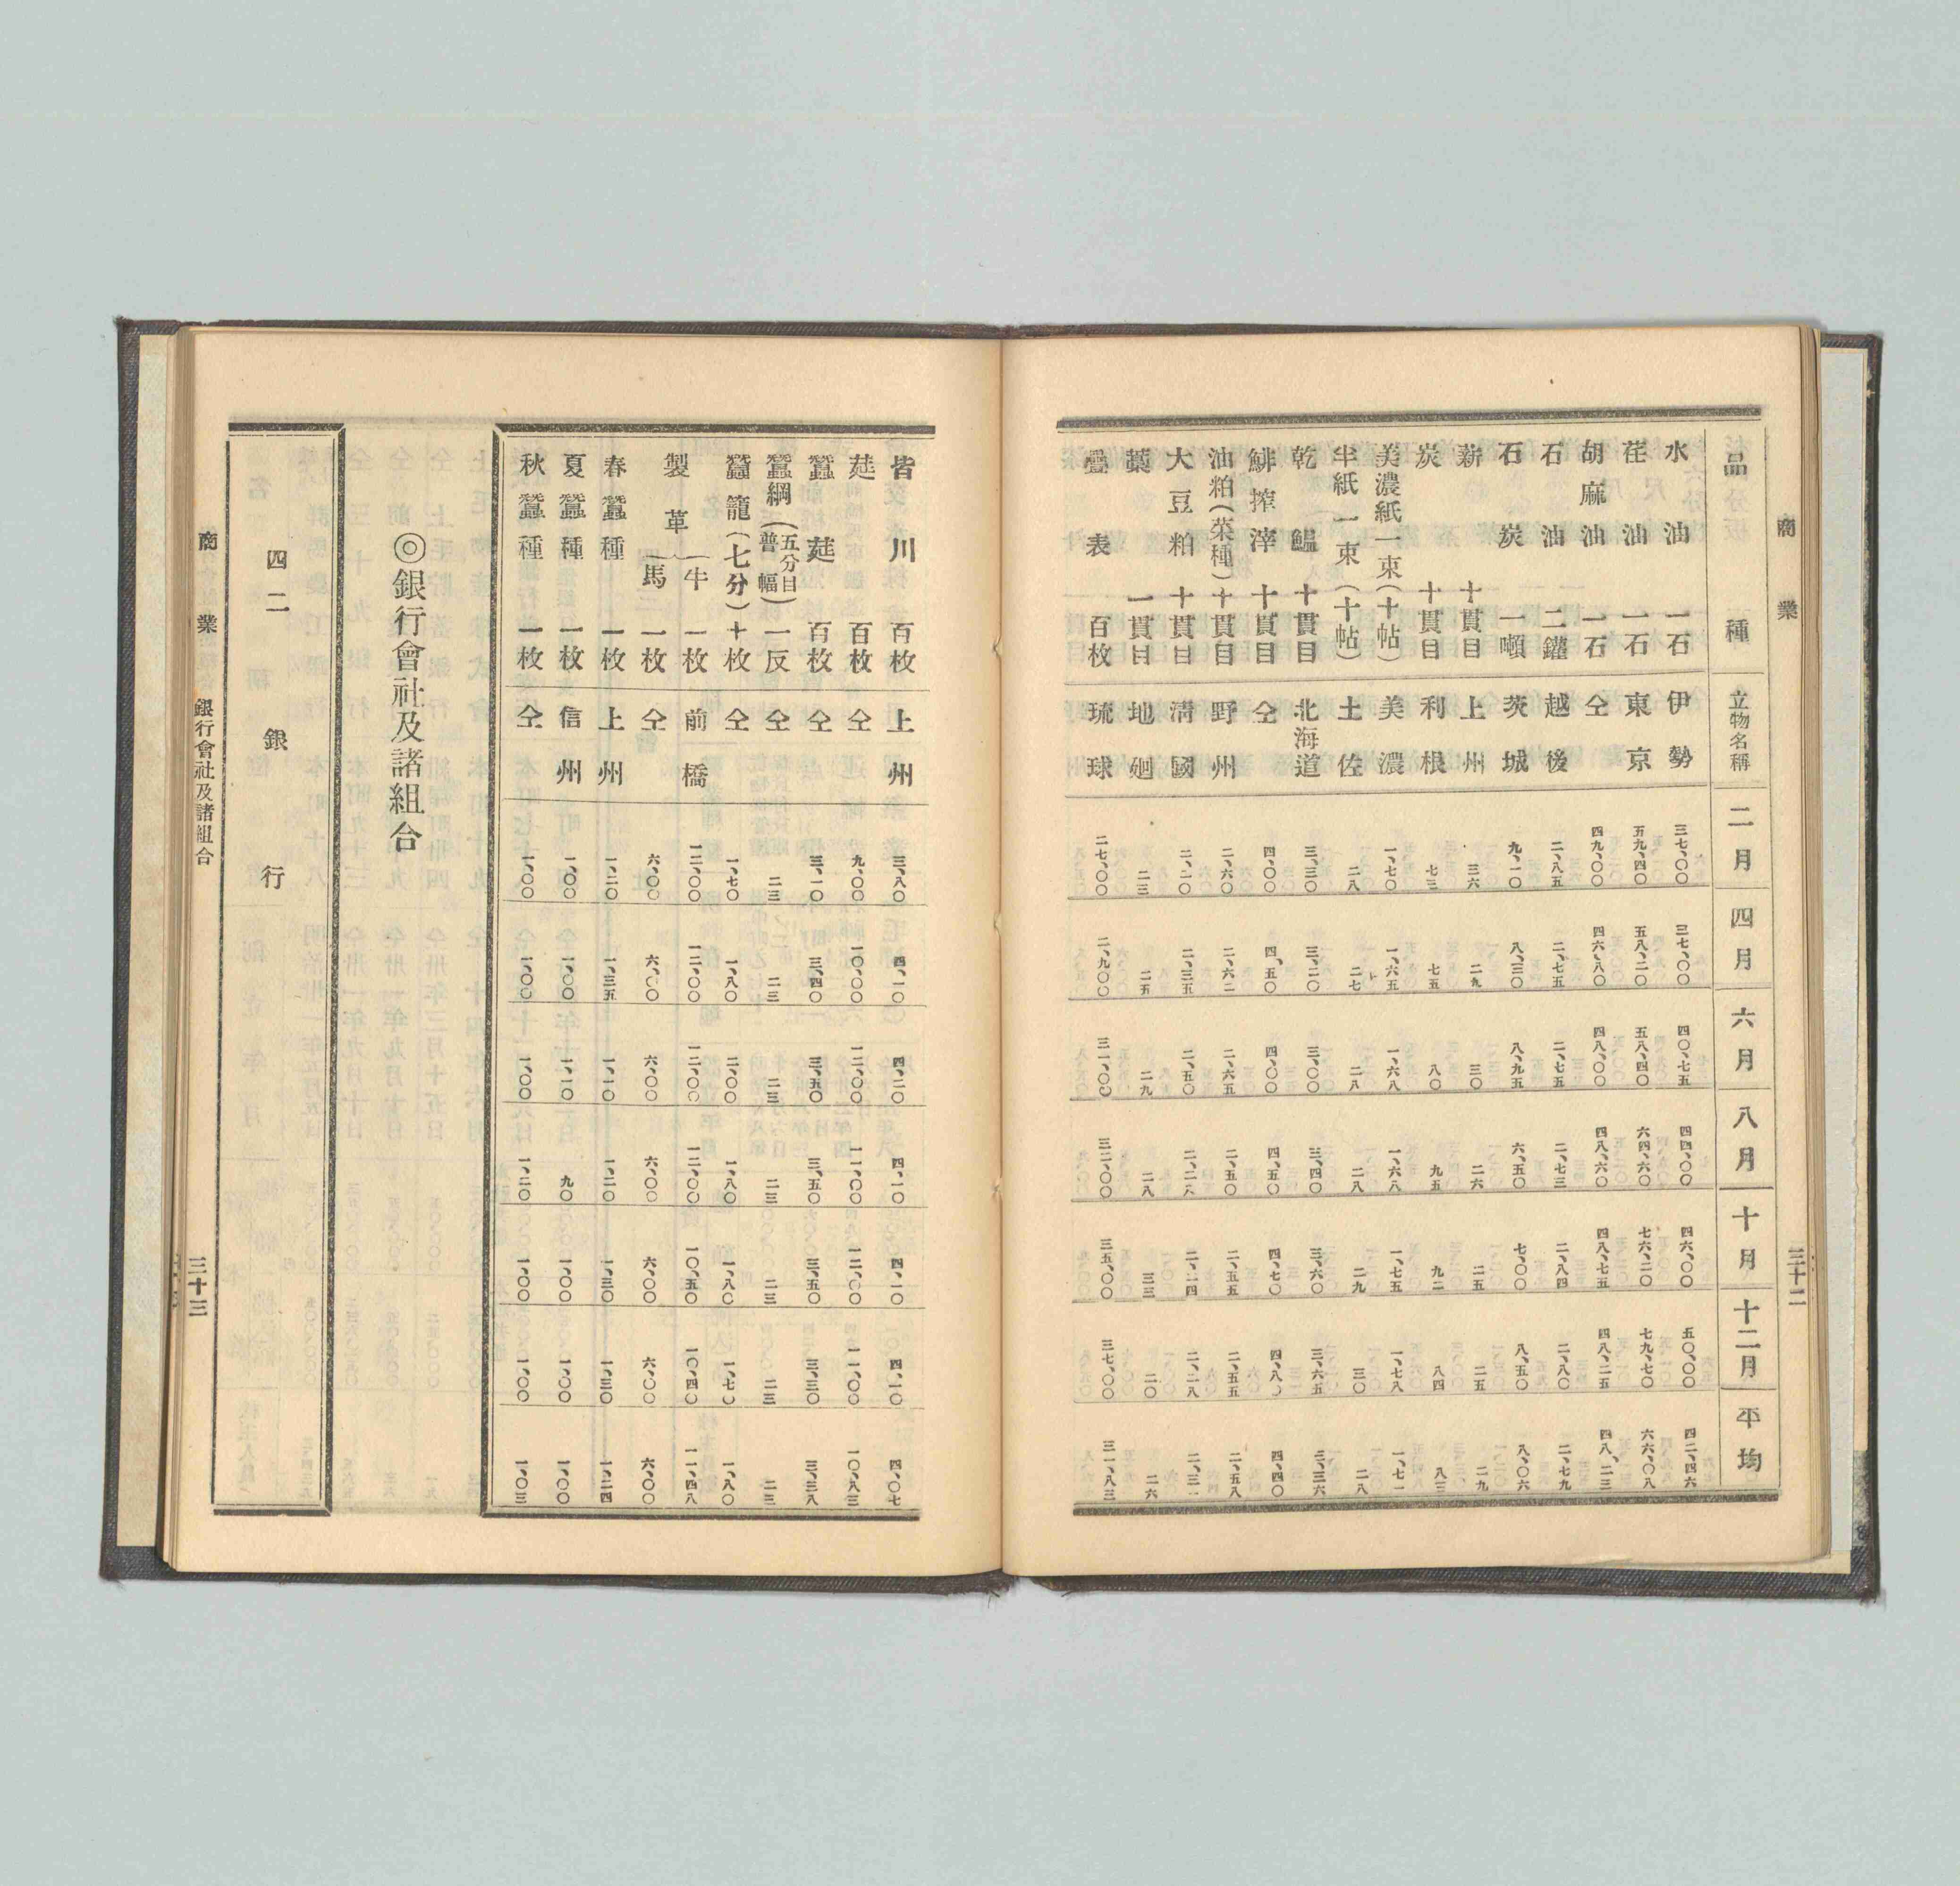 商業
三十二
品種 立物名稱 二月 四月 六月 八月 十月 十二月 平均
水油 一石 伊勢 三七、〇〇 三七、〇〇 四〇、七五 四四、〇〇 四六、〇〇 五〇、〇〇 四二、四六
荏油 一石 東京 五九、四〇 五八、二〇 五八、四〇 六四、六〇 七六、二〇 七九、七〇 六六、〇八
胡麻油 一石 仝 四九、〇〇 四六、八〇 四八、〇〇 四八、六〇 四八、七五 四八、二五 四八、二三
石油 二鑵 越後 二、八五 二、七五 二、七五 二、七三 二、八四 二、八〇 二、七九
石炭 一噸 茨城 九、一〇 八、三〇 八、九五 六、五〇 七、〇〇 八、五〇 八、〇六
薪 十貫目 上州 三六 二九 三〇 二六 二五 二五 二九
炭 十貫目 利根 七三 七五 八〇 九五 九二 八四 八三
美濃紙一束(十帖) 美濃 一、七〇 一、六五 一、六八 一、六八 一、七五 一、七八 一、七一
半紙一束(十帖) 土佐 二八 二七 二八 二八 二九 三〇 二八
乾鰮 十貫目 北海道 三、三〇 三、二〇 三、〇〇 三、四〇 三、六〇 三、六五 三、三六
鯡搾滓 十貫目 仝 四、〇〇 四、五〇 四、〇〇 四、五〇 四、七〇 四、八〇 四、四〇
油粕(菜種) 十貫目 野州 二、六〇 二、六二 二、六五 二、五〇 二、五五 二、五五 二、五八
大豆粕 十貫目 淸國 二、二〇 二、三五 二、五〇 二、二六 二、二四 二、二八 二、三一
藁 一貫目 地廻 二三 二五 二九 二八 三三 二〇 二六
疊表 百枚 琉球 二七、〇〇 二、九〇〇 三一、〇〇 三二、〇〇 三五、〇〇 三七、〇〇 三一、八三
皆川 百枚 上州 三、八〇 四、一〇 四、二〇 四、一〇 四、一〇 四、一〇 四、〇七
莚 百枚 仝 九、〇〇 一〇、〇〇 一二、〇〇 一一、〇〇 一二、〇〇 一一、〇〇 一〇、八三
蠶莚 百枚 仝 三、一〇 三、四〇 三、五〇 三、五〇 三、五〇 三、三〇 三、三八
蠶綱(五分目普幅) 一反 仝 二三 二三 二三 二三 二三 二三 二三
蠶籠(七分) 十枚 仝 一、七〇 一、八〇 二、〇〇 一、八〇 一、八〇 一、七〇 一、八〇
製革 牛 一枚 前橋 一二、〇〇 一二、〇〇 一二、〇〇 一二、〇〇 一〇、五〇 一〇、四〇 一一、四八
馬 一枚 仝 六、〇〇 六、〇〇 六、〇〇 六、〇〇 六、〇〇 六、〇〇 六、〇〇
春蠶種 一枚 上州 一、二〇 一、三五 一、一〇 一、二〇 一、三〇 一、三〇 一、二四
夏蠶種 一枚 信州 一、〇〇 一、〇〇 一、一〇 九〇 一、〇〇 一、〇〇 一、〇〇
秋蠶種 一枚 仝 一、〇〇 一、〇〇 一、〇〇 一、二〇 一、〇〇 一、〇〇 一、〇三
◎銀行會社及諸組合
四二 銀行
商業 銀行會社及諸組合
三十三